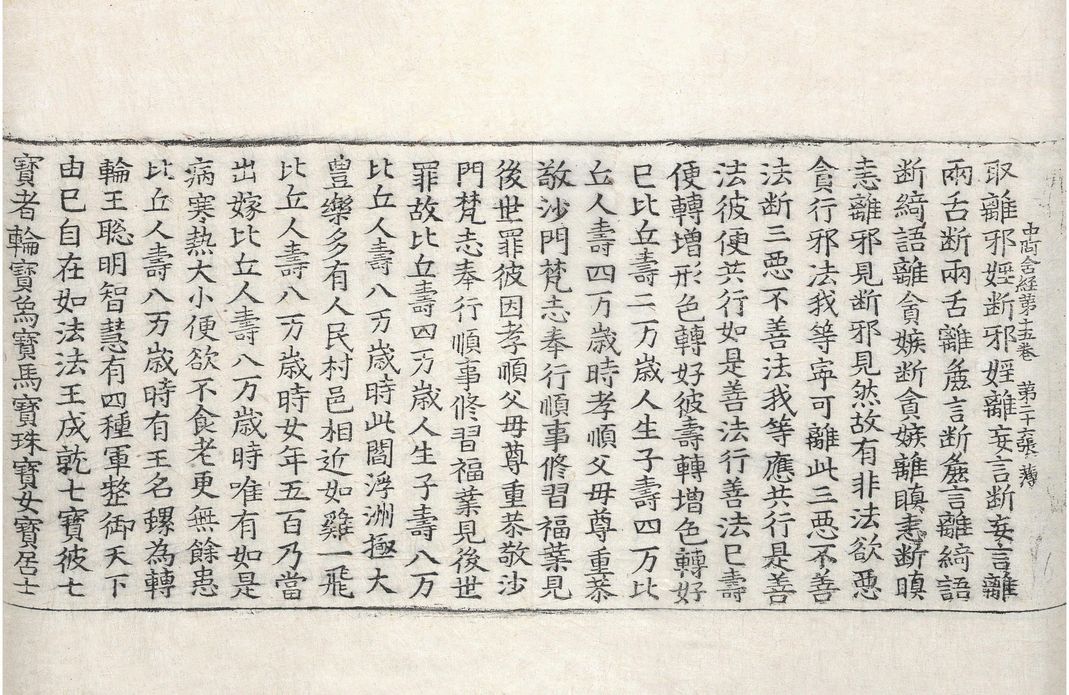 中阿含経第十五卷 第二十張 薄
取離邪婬断邪婬離妄言断妄言離
兩舌断兩舌離麁言断麁言離綺語
断綺語離貪嫉断貪嫉離瞋恚断瞋
恚離邪見断邪見然故有非法欲惡
貪行邪法我等寧可離此三惡不善
法断三惡不善法我等應共行是善
法彼便共行如是善法行善法已壽
便轉增形色轉好彼壽轉增色轉好
已比丘壽二万歲人生子壽四万比
丘人壽四万歲時孝順父母尊重恭
敬沙門梵志奉行順事修習福業見
後世罪彼因孝順父母尊重恭敬沙
門梵志奉行順事修習福業見後世
罪故比丘壽四万歲人生子壽八万
比丘人壽八万歲時此閻浮洲極大
豊樂多有人民村邑相近如雞一飛
比丘人壽八万歲時女年五百乃當
出嫁比丘人壽八万歲時唯有如是
病寒熱大小便欲不食老更無餘患
比丘人壽八万歲時有王名螺為轉
輪王聡明智慧有四種軍整御天下
由已自在如法法王成就七寶彼七
寶者輪寶象寶馬寶珠寶女寶居士